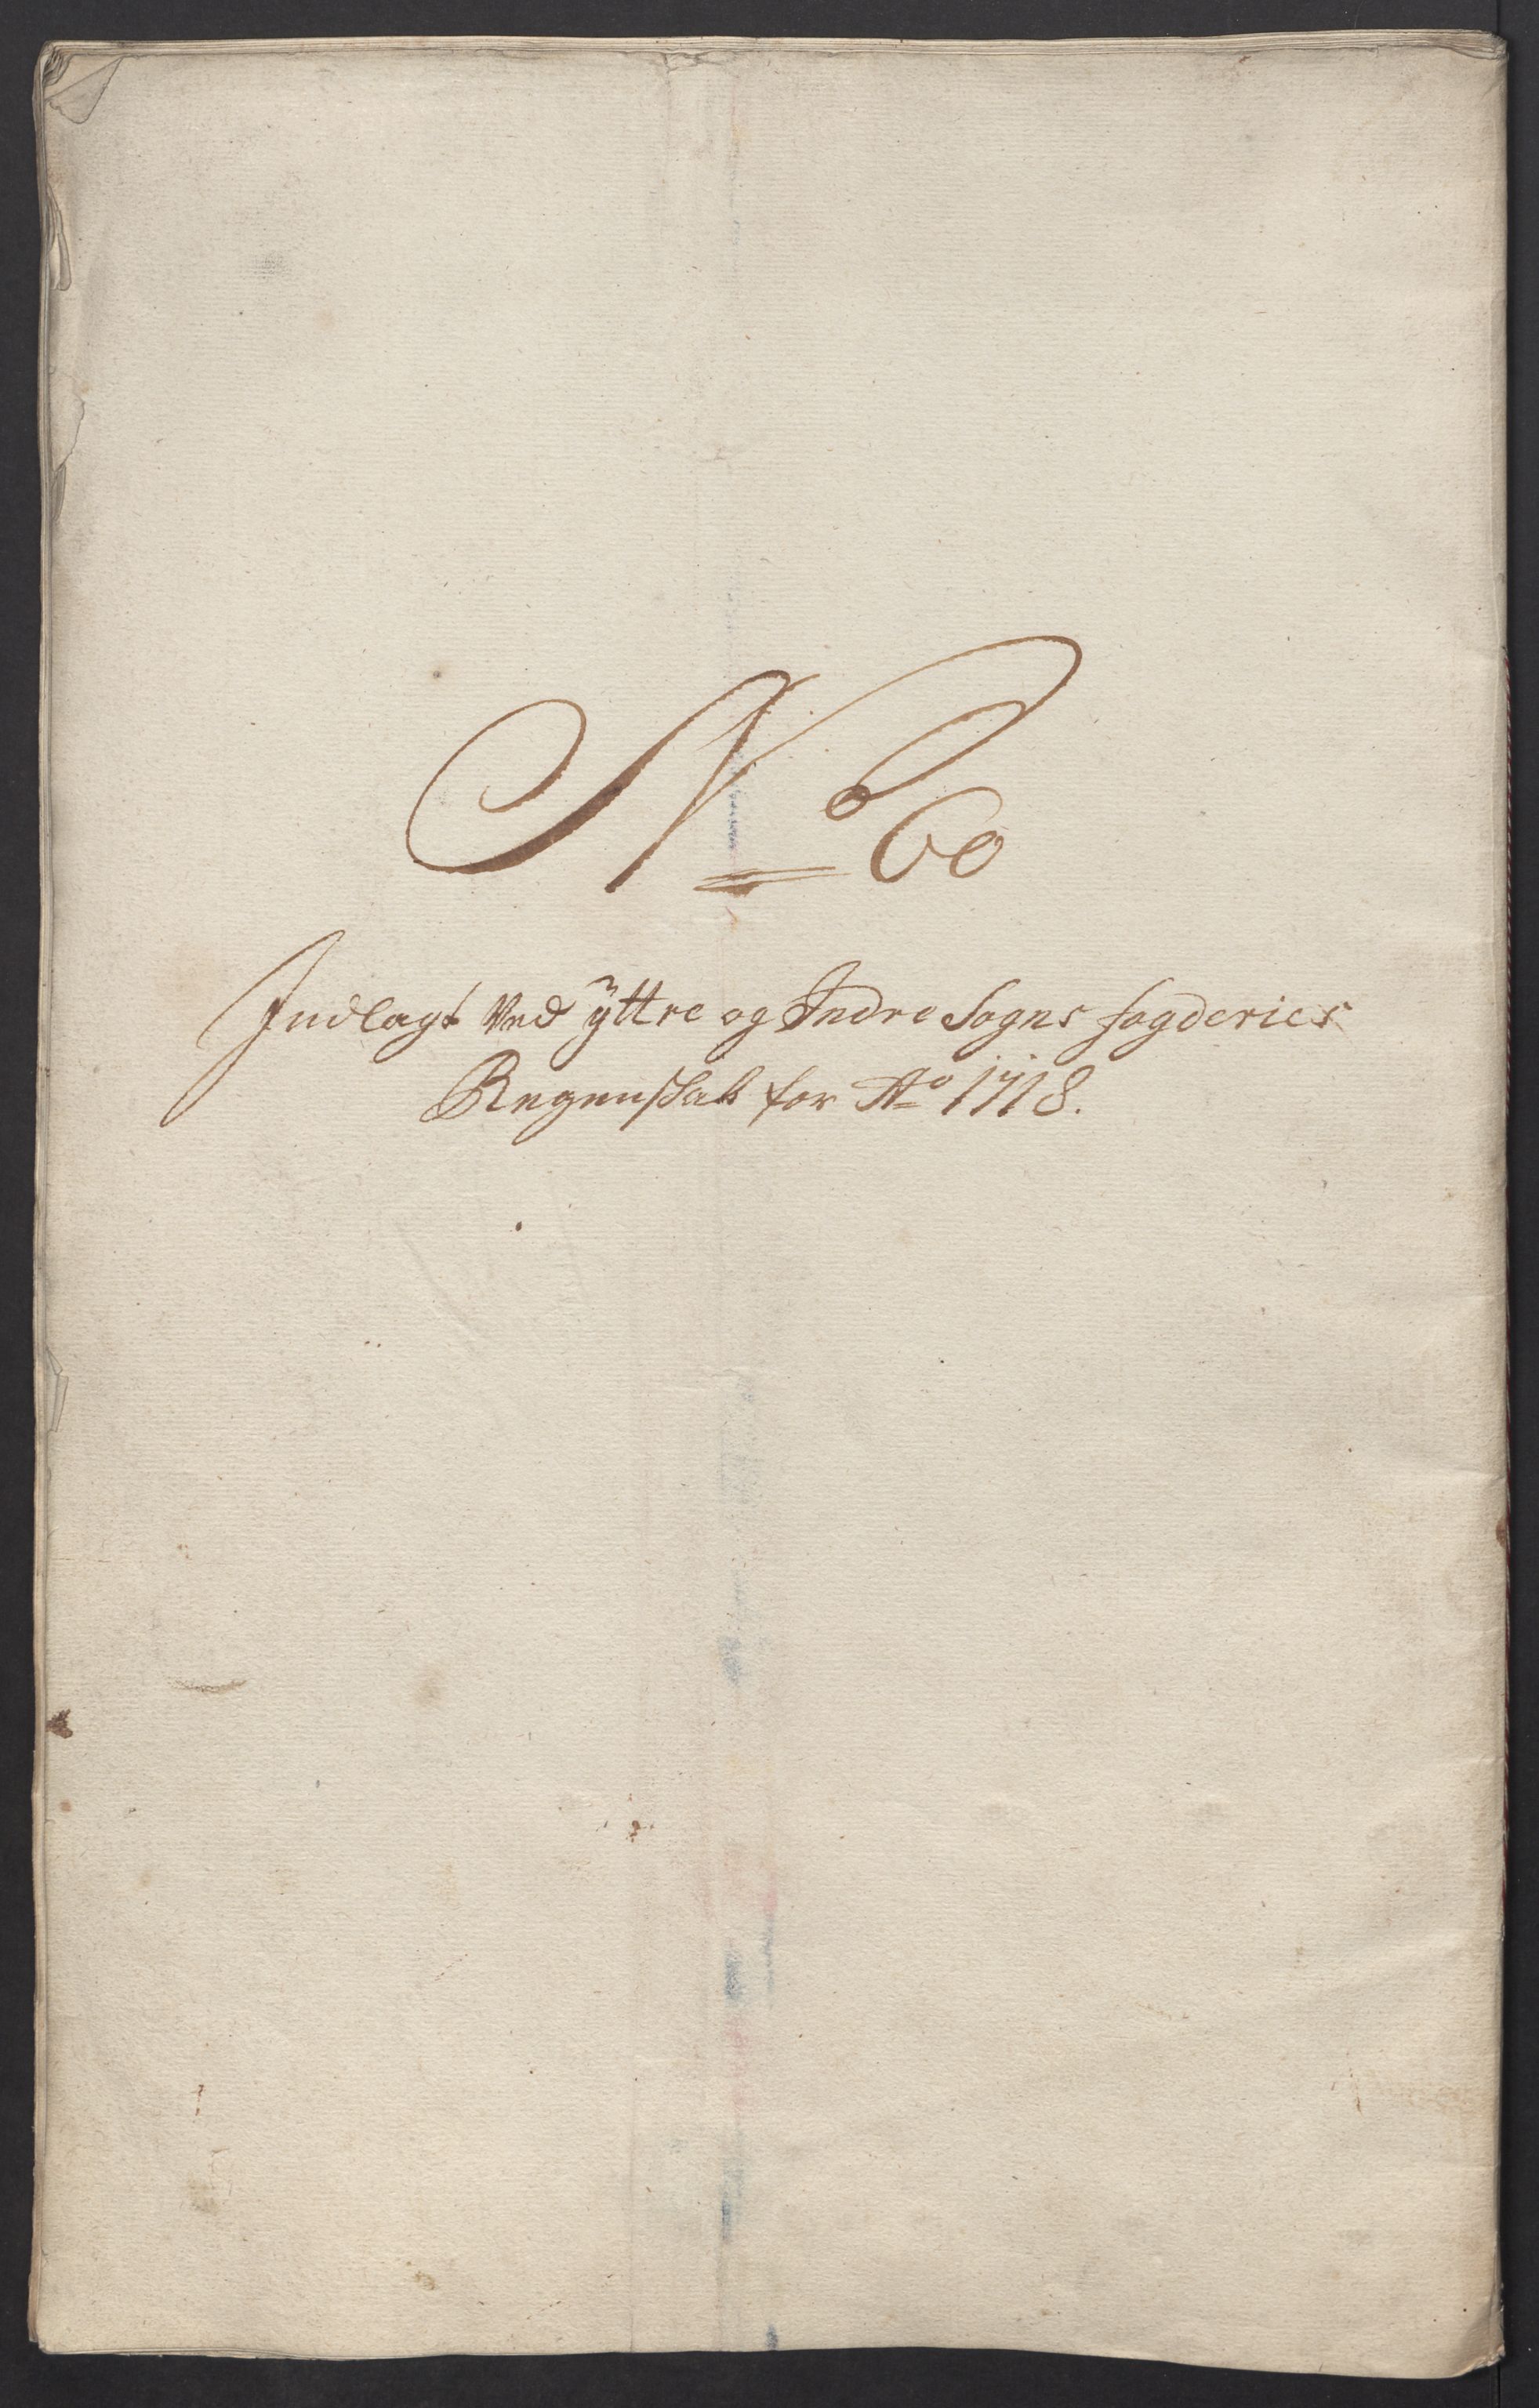 No 60
Indlagt Ved ÿttre og Indre Sogns fogderies
Regenskab for Ao 1718.